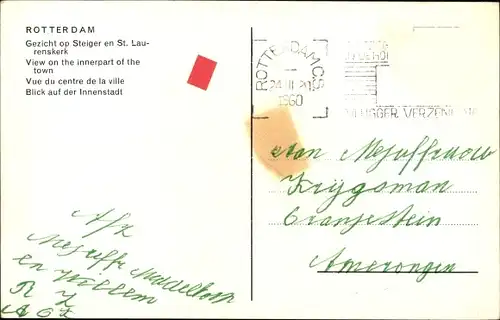 ROTTERDAM
Gezicht op Steiger en St. Lau-
renskerk
View on the innerpart of the
town
Vue du centre de la ville
Blick auf der Innenstadt
ROTTERDAM CS
24 III 20
1960
VLUGGER VERZENDING
Aan Mejuffrouw
Krijgsman
Oranjestein
Amerongen
Afz
Mejuffr Middelkoop
en Willem
R